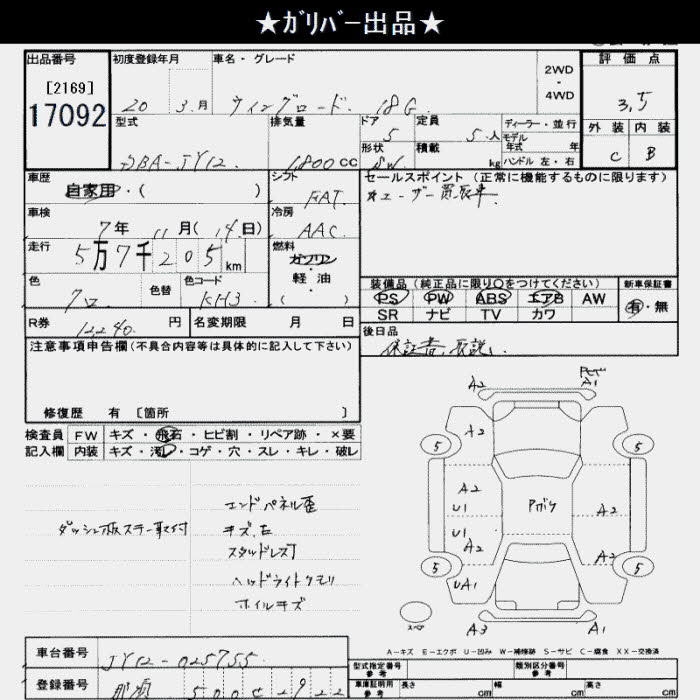 ★ガリバー出品★
出品番号 初度登録年月 車名・グレード 2WD・4WD 評価点
[2169]
17092 20 3.月 ウィングロード 18G 3.5
型式 排気量 ドア 定員 ディーラー・並行 外装 内装
DBA-JY12 1,800cc 5 5人 モデル年式 年 C B
形状 SW 積載 kg ハンドル左・右
車歴 シフト セールスポイント(正常に機能するものに限ります)
自家用・( ) FAT ★ユーザー買取車
車検 冷房
7年 11月(14日) AAC
走行 燃料
5万7千205km ガソリン
色 色替 色コード 軽・油 装備品(純正品に限り○をつけてください) 新車保証書
クロ KH3 ( ) PS PW ABS エアB AW 有・無
SR ナビ TV カワ
R券 12,240.円 名変期限 月 日 後日品
注意事項申告欄(不具合内容等は具体的に記入して下さい) 保証書、取説、
修復歴 有 [箇所 ]
検査員 FW キズ・飛石・ヒビ割・リペア跡・×要
記入欄 内装 キズ・汚レ・コゲ・穴・スレ・キレ・破レ
エンドパネル歪
ダッシュ板ステー取付 キズ、右
スタッドレス
ヘッドライトクモリ
ホイルキズ
A2 A1
A2
5 5
A2
U1 Pボケ A2
U1
A2 A2
5 5
UA1
スペア A3 A1
A-キズ E-エクボ U-凹み W-補修跡 S-サビ C-腐食 XX-交換済
車台番号 JY12-025755 型式指定番号 参考 類別区分番号 参考
登録番号 那須 500 2922 車庫証明用 参考 長さ cm 幅 cm 高さ cm